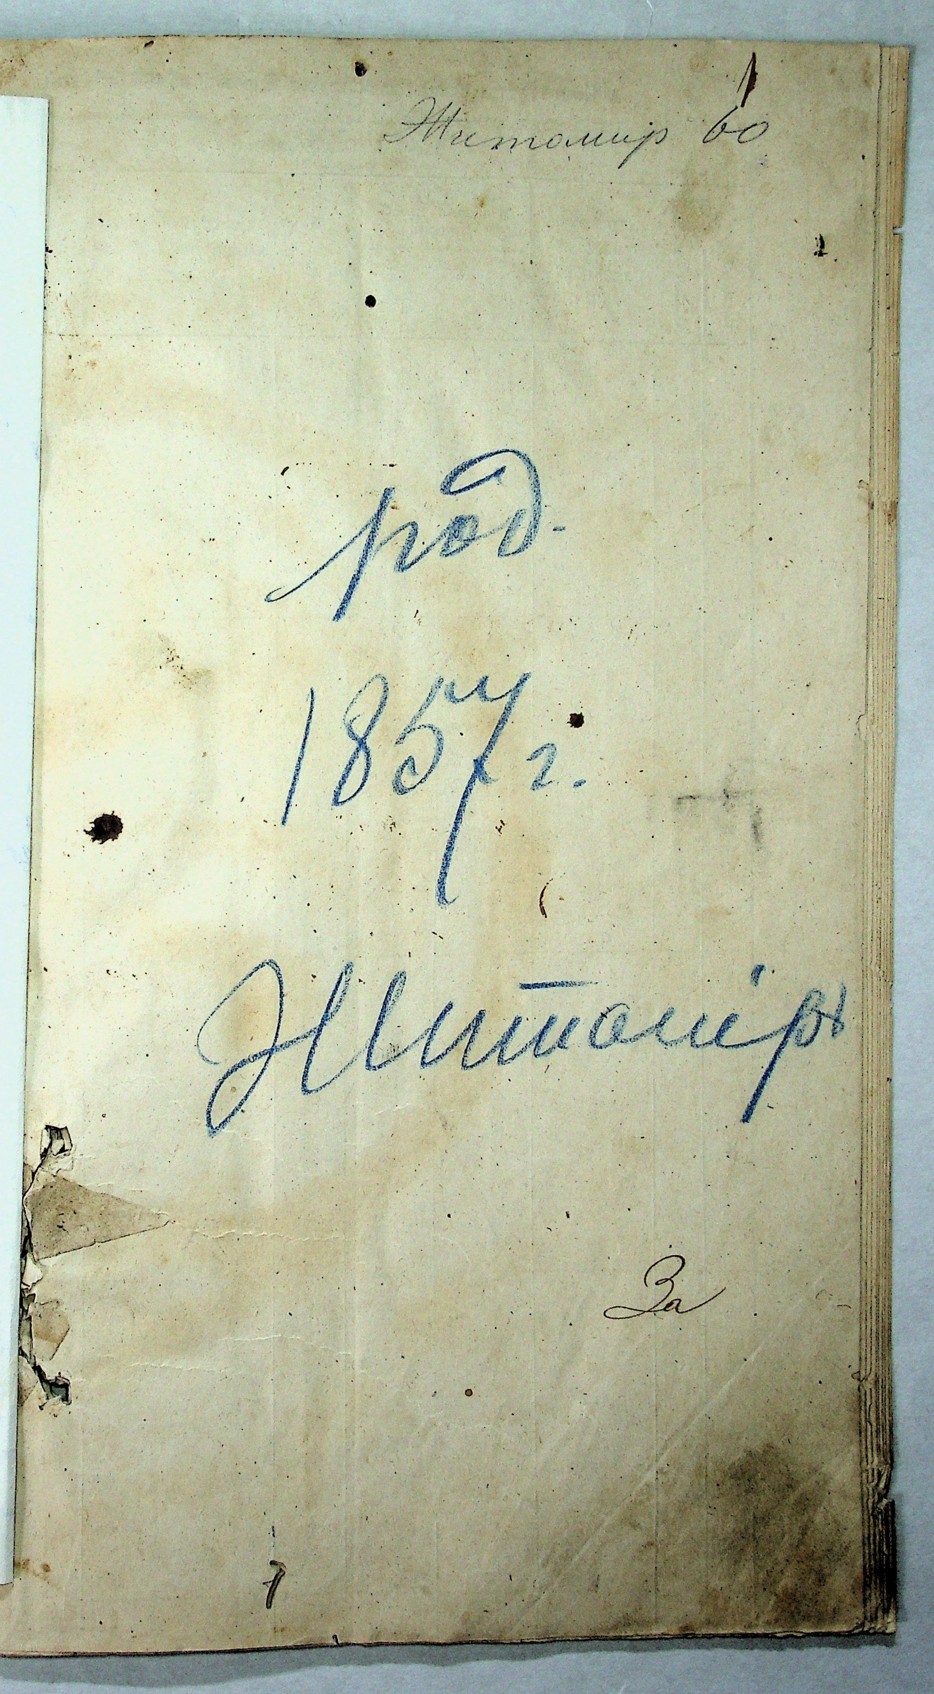 Житомир 60
1
род.
1857 г.
Житомiръ
За